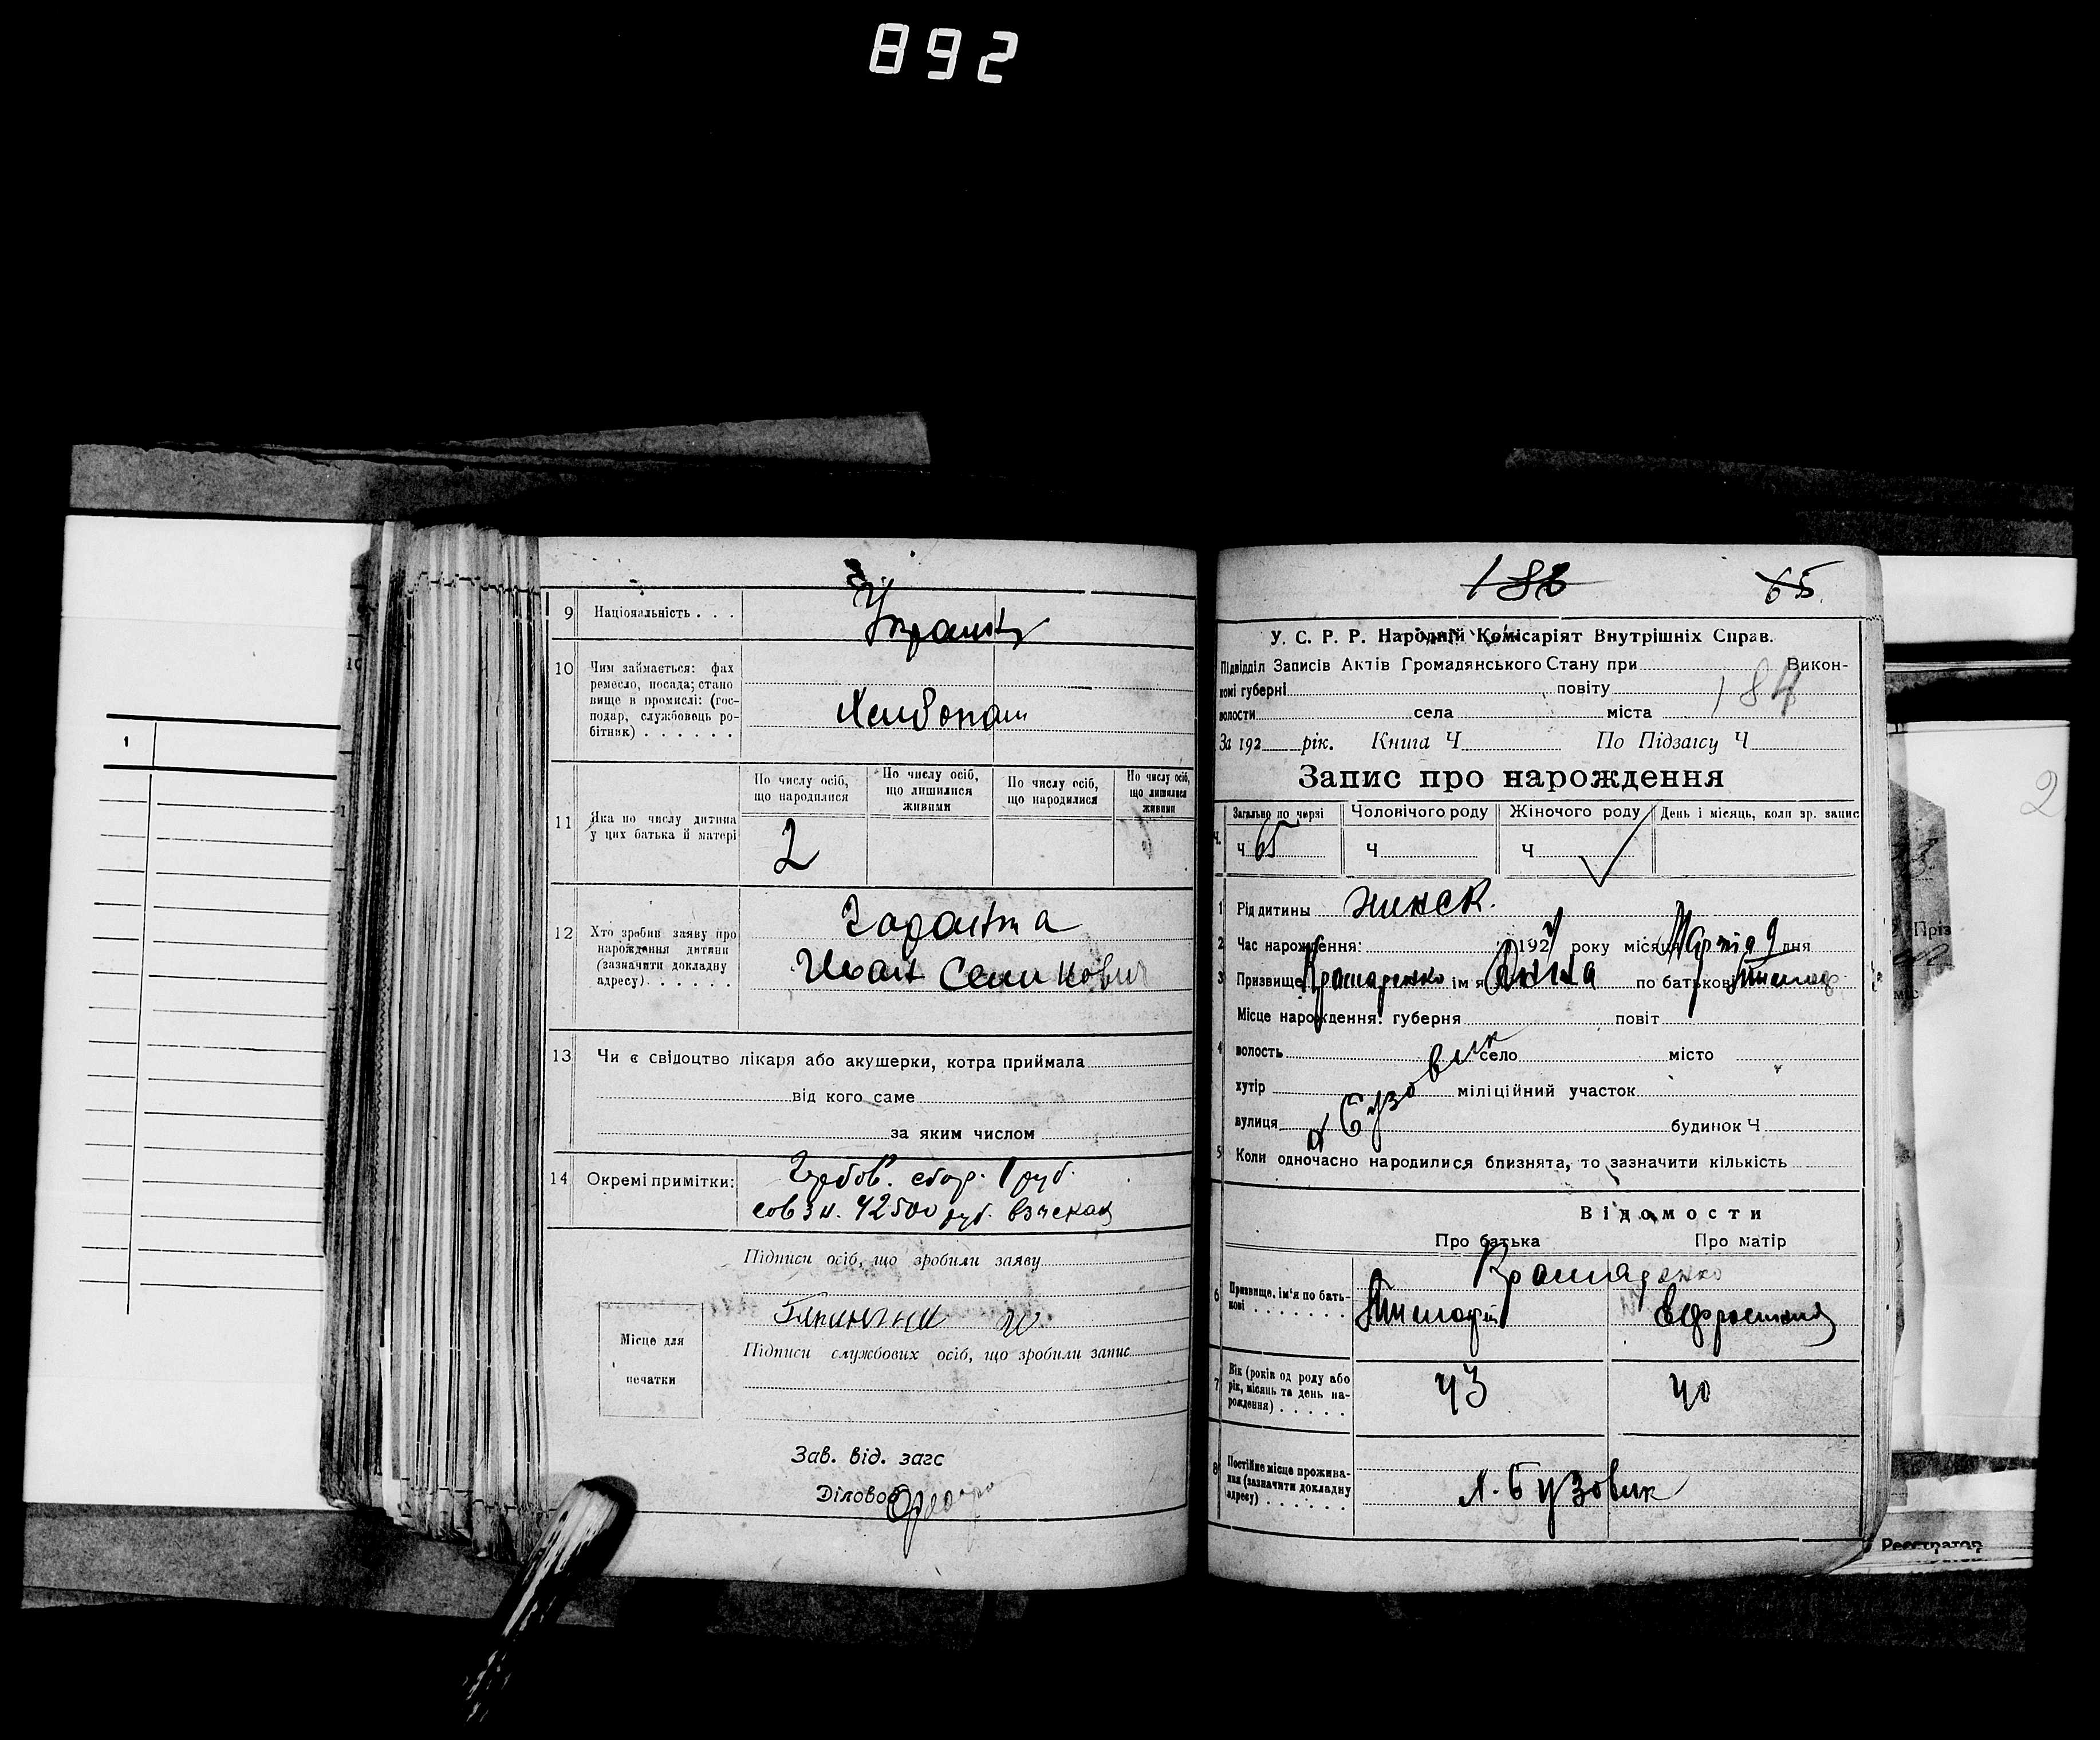 892
9 Національність . . .
Украинц
10 Чим займається: фах
ремесло, посада; стано
вище в промислі: (гос-
подар, службовець ро-
бітник) . . . . . .
Хлибопаш
11 Яка по числу дитина
у цих батька й матері
По числу осіб,
що народилися
По числу осіб,
що лишилися
живими
По числу осіб,
що народилися
По числу осіб,
що лишилися
живими
2
12 Хто зробив заяву про
нарождення дитини
(зазначити докладну
адресу) . . . . .
Иван Семикович
13 Чи є свідоцтво лікаря або акушерки, котра приймала
від кого саме
за яким числом
14 Окремі примітки:
Гербов. сбор. 1 руб.
совзн. 42500 руб. взискан
Підписи осіб, що зробили заяву
Місце для
печатки
Підписи службових осіб, що зробили запис
Зав. від. загс
Діловод
186 65
У. С. Р. Р. Народній Комісаріят Внутрішніх Справ.
Підвідділ Записів Актів Громадянського Стану при Викон-
комі губерні повіту 184
волости села міста
За 192 рік. Книга Ч По Підзагсу Ч
Запис про нарождення
Загально по черзі Чоловічого роду Жіночого роду День і місяць, коли зр. запис
Ч. Ч 65 Ч Ч
1 Рід дитины женск.
2 Час нарождення: 192 року місяця Марта 9 дня
3 Призвище Крамаренко ім'я Анна по батькові Тимоф
4 Місце нарождення: губерня повіт
волость село місто
хутір міліційний участок
вулиця х Бузовик будинок Ч
5 Коли одночасно народилися близнята, то зазначити кількість
Відомости
Про батька Про матір
Крамаренко
6 Призвище, ім'я по бать-
кові . . . . . .
Тимофій Ефросиния
7 Вік (років од роду або
рік, місяць та день на-
рождення) . . . . .
43 40
8 Постійне місце прожива-
ння (зазначити докладну
адресу) . . . . . .
х. Бузовик
Реєстратор